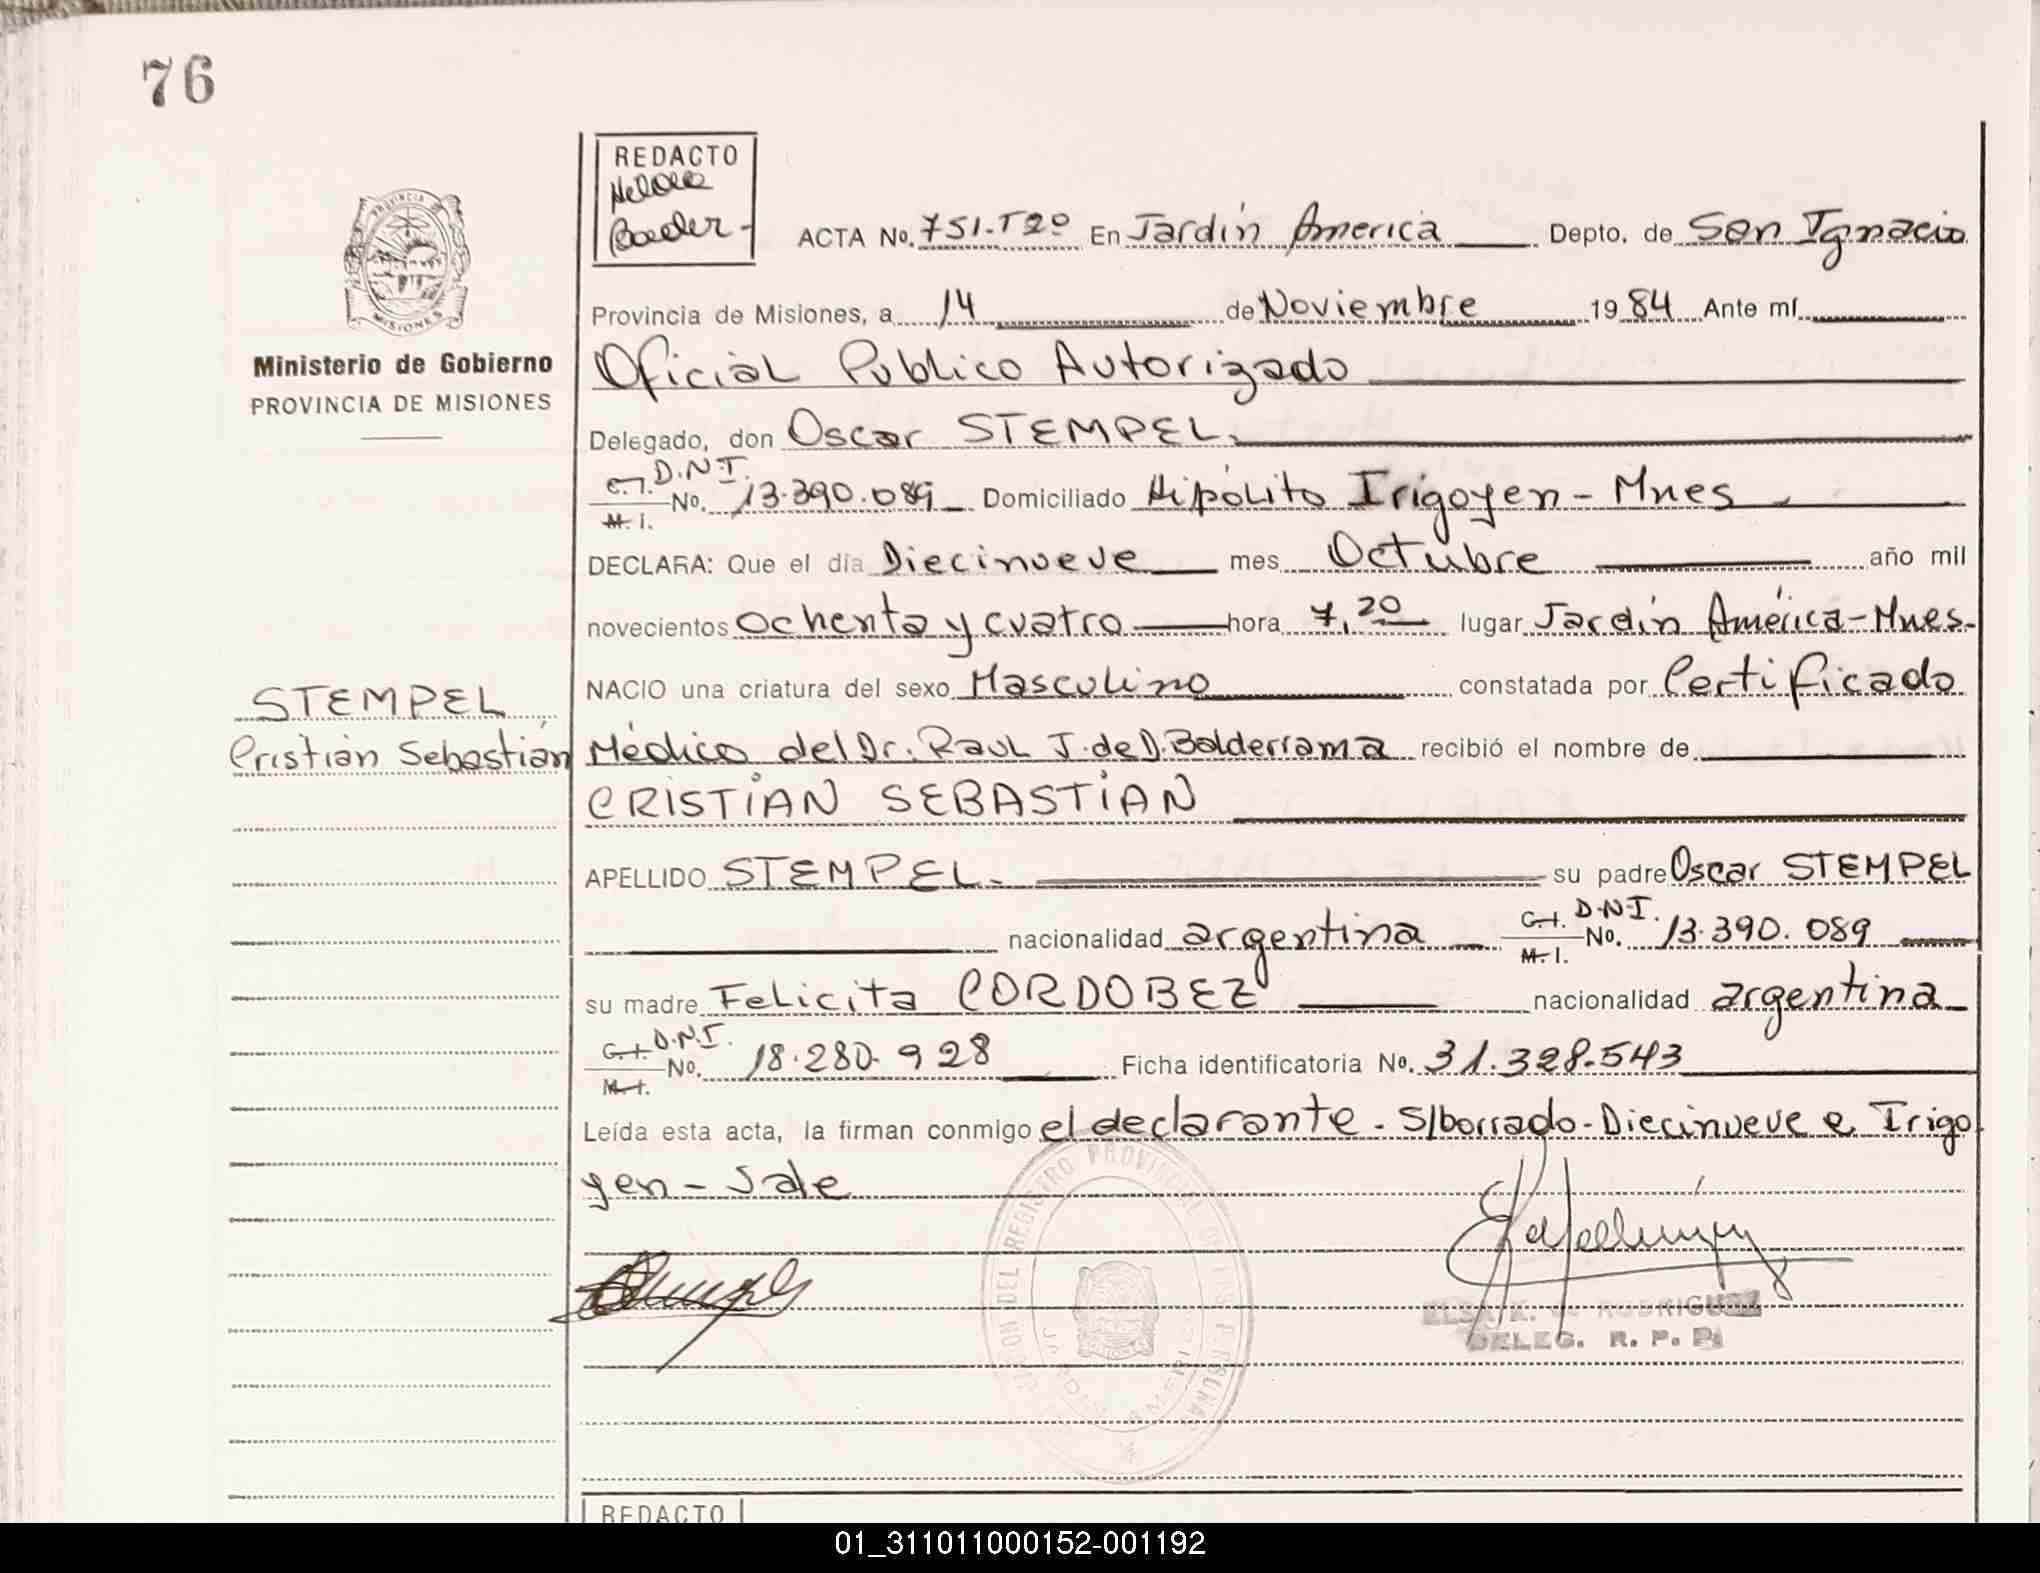 76
REDACTO
Baeder-
ACTA No. 751-T2º En Jardín America Depto. de San Ignacio
PROVINCIA DE
MISIONES
Provincia de Misiones, a 14 de Noviembre 1984 Ante mí
Ministerio de Gobierno
PROVINCIA DE MISIONES
Oficial Publico Autorizado
Delegado, don Oscar STEMPEL.
C.I. D.N.I. No. 13.390.089 Domiciliado Hipólito Irigoyen - Mnes
M. I.
DECLARA: Que el día Diecinueve mes Octubre año mil
novecientos ochenta y cuatro hora 7,20 lugar Jardín América-Mnes.
NACIO una criatura del sexo Masculino constatada por Certificado
STEMPEL
Cristián Sebastián
Médico del Dr. Raul J. de D. Balderrama recibió el nombre de
CRISTIAN SEBASTIAN
APELLIDO STEMPEL. su padre Oscar STEMPEL
nacionalidad argentina C.I. D.N.I. No. 13.390.089
M. I.
su madre Felicita CORDOBEZ nacionalidad argentina
C.I. D.N.I. No. 18.280.928 Ficha identificatoria No. 31.328.543
M. I.
Leída esta acta, la firman conmigo el declarante. S/borrado-Diecinueve e Irigo
yen - Vale
DEL REGISTRO PROVINCIAL DE LAS PERSONAS
JARDIN AMERICA
ELSA K. de RODRIGUEZ
DELEG. R. P. P.
REDACTO
01_311011000152-001192